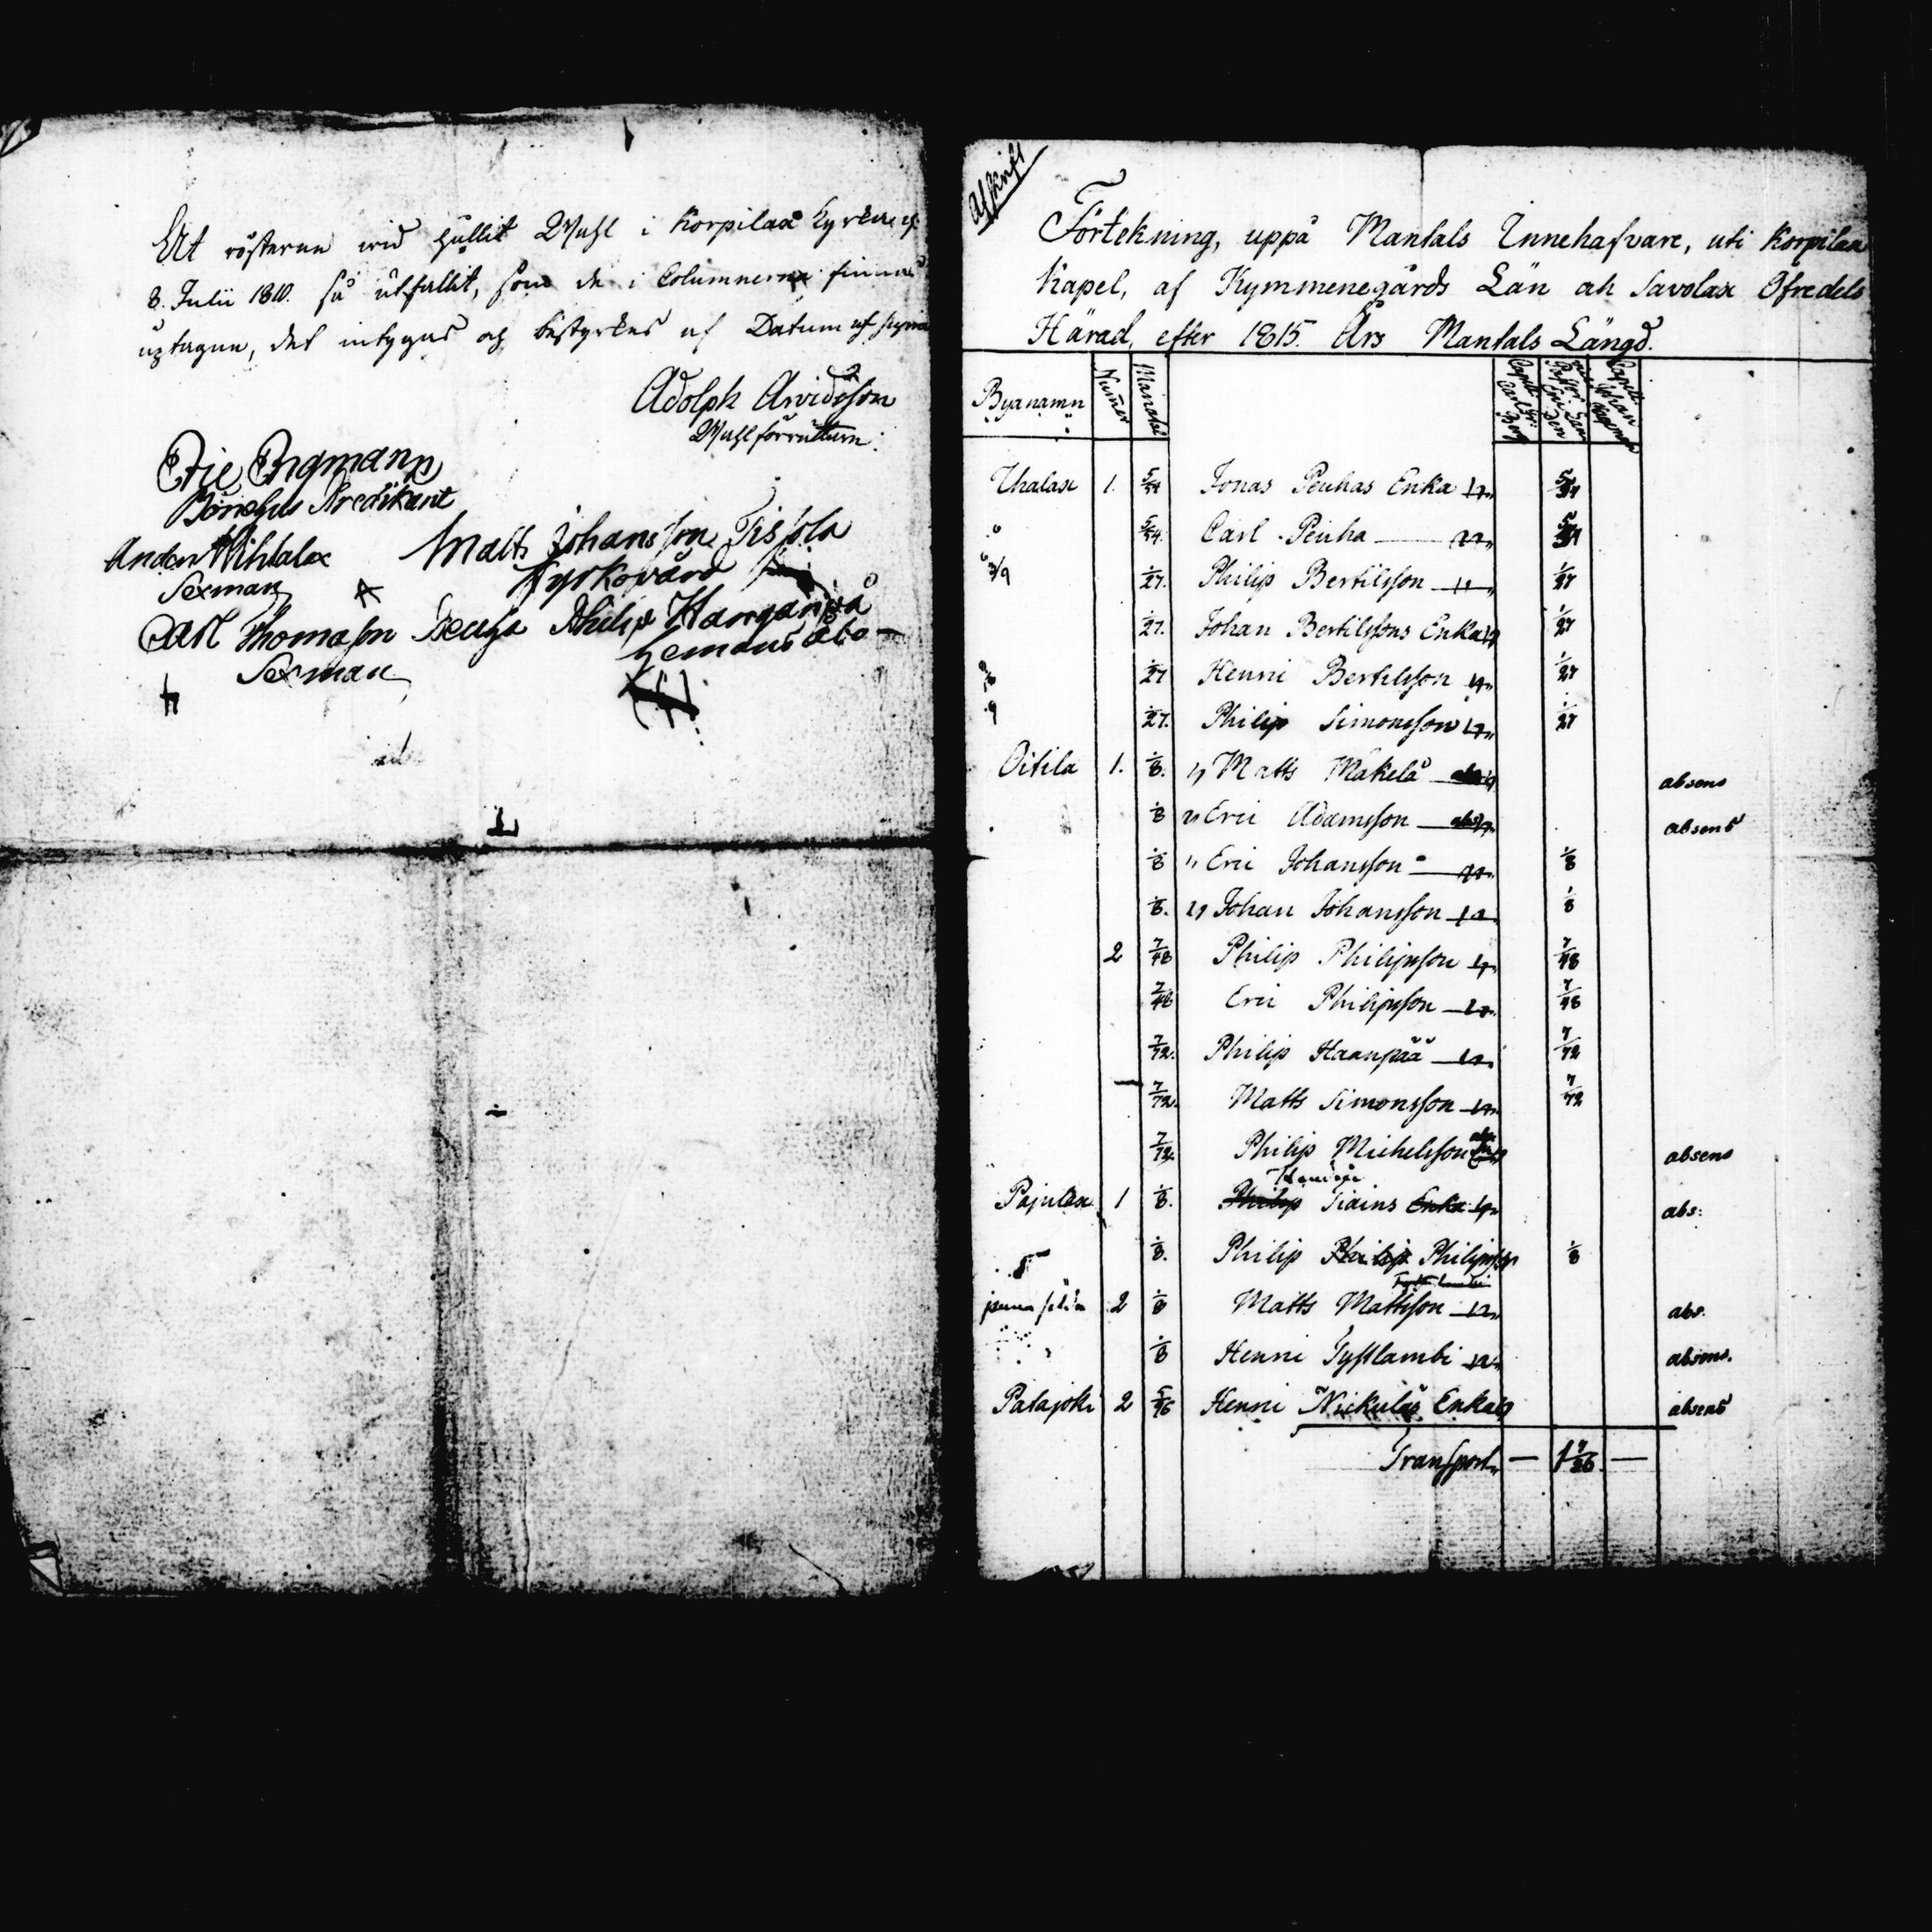 At rösterna wid hållit Wahl i Korpilax Kyrka d.
8. Julii 1810. så utfallit, som de i Columnerna finnas
uptagne, det intygas och bestyrkes af Datum ut supra
Adolph Arvidsson
Wahlförrättare.
Eric Ergmann
Bönehus Predikant
Anders Wihtalax
Sexman
Matts Johansson Tissola
Kyrkovärd
Carl Thomasson Peuha
Sexman
Philip Haanpää
Afskrift
Förtekning, uppå Mantals Innehafvare, uti Korpilax
Kapel, af Kymmenegårds Län och Savolax Öfredels
Härad, efter 1815. Års Mantals Längd.
Byanamn Numer Mantal
Uhalax 1. 5/54 Jonas Peuhas Enka 5/54
5/54. Carl Peuha 5/54
1/27. Philip Bertilsson 1/27
1/27. Johan Bertilssons Enka 1/27
1/27 Henric Bertilsson 1/27
1/27. Philip Simonsson 1/27
Oitila 1. 1/8. Matts Mäkelä absens
1/8 Eric Adamsson absens
1/8 Eric Johansson 1/8
1/8. Johan Johansson 1/8
2 7/48 Philip Philipsson 7/48
7/48 Eric Philipsson 7/48
7/72. Philip Haanpää 7/72
7/72. Matts Simonsson 7/72
7/72. Philip Michelsson absens
Pajulax 1 1/8. Philip Tiains Enka abs:
1/8. Philip Philip Philipsson 1/8
2 1/8 Matts Mattsson abs.
1/8 Henric Tyftlambi absens.
Patajoki 2 5/96 Henric Nickuläs Enka absens
Transport